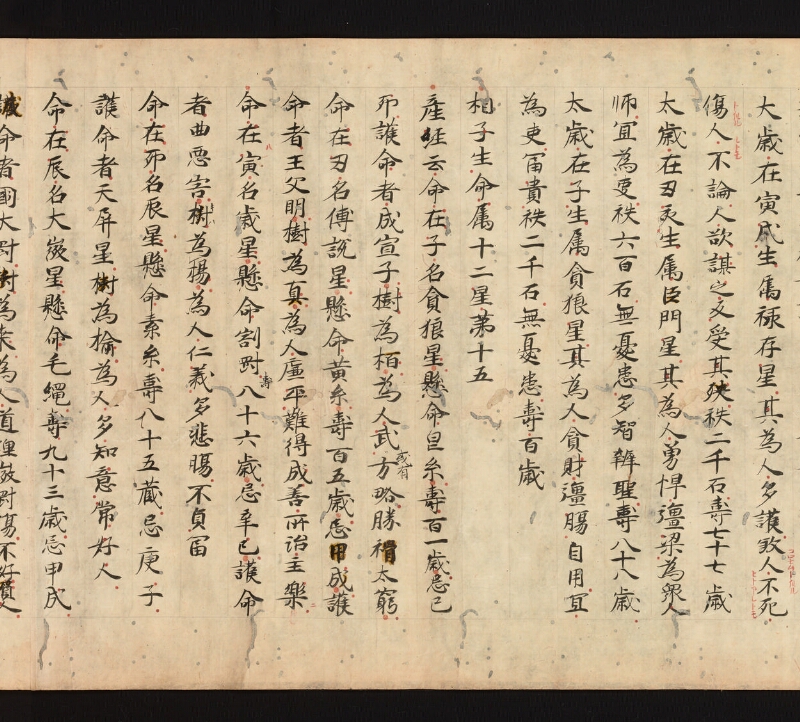 大歲在寅戌生屬祿存星其為人多護敦人不死
傷人不論人欲謀之反受其殃秩二千石壽七十七歲
太歲在丑亥生屬臣門星其為人勇悍彊梁為眾人
師宜為吏秩六百石無憂患多智辯聖壽八十八歲
太歲在子生屬貪狼星其為人貪財彊腸自用宜
為吏冨貴秩二千石無憂患壽百歲
相子生命屬十二星第十五
產經云命在子名貪狼星懸命皂糸壽百一歲忌己
夘護命者成宣子樹為栢為人武方略勝太窮
命在丑名傅說星懸命黃糸壽百五歲忌甲戌護
命者王父明樹為真為人廉平難得成善所治主樂
命在寅名歲星懸命割對八十六歲忌辛巳護命
壽
者曲惡害樹為楊為人仁義多悲腸不貞冨
命在夘名辰星懸命素糸壽八十五歲忌庚子
護命者天屏星樹為榆為人多知意常好人
命在辰名大歲星懸命毛繩壽九十三歲忌甲戌
護命者國大對樹為桒為人道理